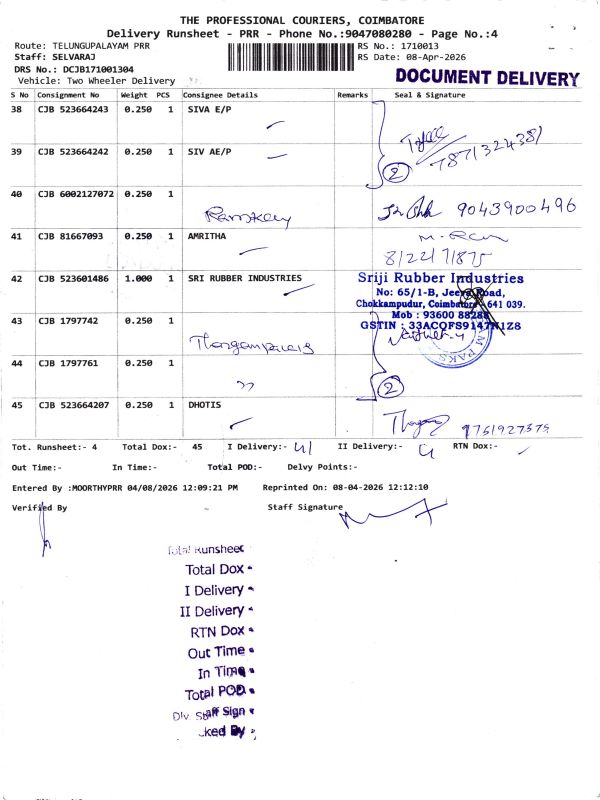 THE PROFESSIONAL COURIERS, COIMBATORE
Delivery Runsheet - PRR - Phone No.:9047080280 - Page No.:4
Route: TELUNGUPALAYAM PRR
RS No.: 1710013
Staff: SELVARAJ
RS Date: 08-Apr-2026
DRS No.: DCJB171001304
Vehicle: Two Wheeler Delivery
DOCUMENT DELIVERY
S No Consignment No Weight PCS Consignee Details Remarks Seal & Signature
38 CJB 523664243 0.250 1 SIVA E/P
7871324381
39 CJB 523664242 0.250 1 SIV AE/P
2
40 CJB 6002127072 0.250 1
9043900496
41 CJB 81667093 0.250 1 AMRITHA
8122171875
42 CJB 523601486 1.000 1 SRI RUBBER INDUSTRIES
Sriji Rubber Industries
No: 65/1-B, Jeeva Road,
Chokkampudur, Coimbatore 641 039.
Mob : 93600 88288
GSTIN : 33ACQFS9147N1Z8
43 CJB 1797742 0.250 1
44 CJB 1797761 0.250 1
2
45 CJB 523664207 0.250 1 DHOTIS
9751927375
Tot. Runsheet:- 4 Total Dox:- 45 I Delivery:- 41 II Delivery:- 4 RTN Dox:-
Out Time:- In Time:- Total POD:- Delvy Points:-
Entered By :MOORTHYPRR 04/08/2026 12:09:21 PM Reprinted On: 08-04-2026 12:12:10
Verified By Staff Signature
Total Runsheet
Total Dox
I Delivery
II Delivery
RTN Dox
Out Time
In Time
Total POD
Div. Staff Sign
ked By